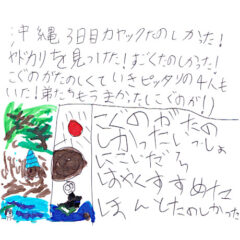 沖縄3日目カヤックたのしかった!
ヤドカリを見つけた!すごくたのしかった!
こぐのがたのしくていきピッタリの4人も
いた!弟たちもうまかったしこぐのが!)
こぐのがたの
しかったいっしょ
にこいだら
はやくすすめた
ほんとたのしかった